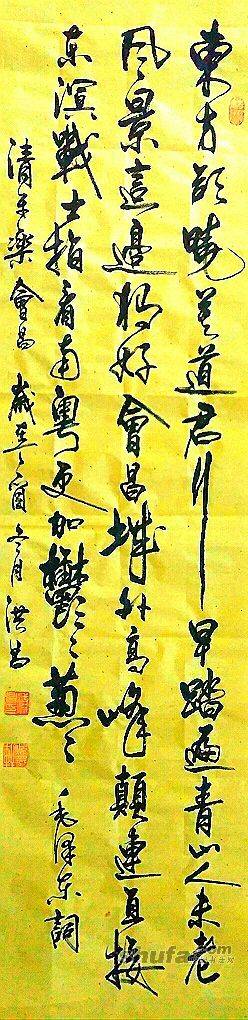 東方欲曉莫道君行早踏遍青山人未老
風景這邊獨好會昌城外高峰顛連直接
东溟戰士指看南粤更加鬱々蔥々 毛澤东詞
清平樂會昌 歲在 冬月